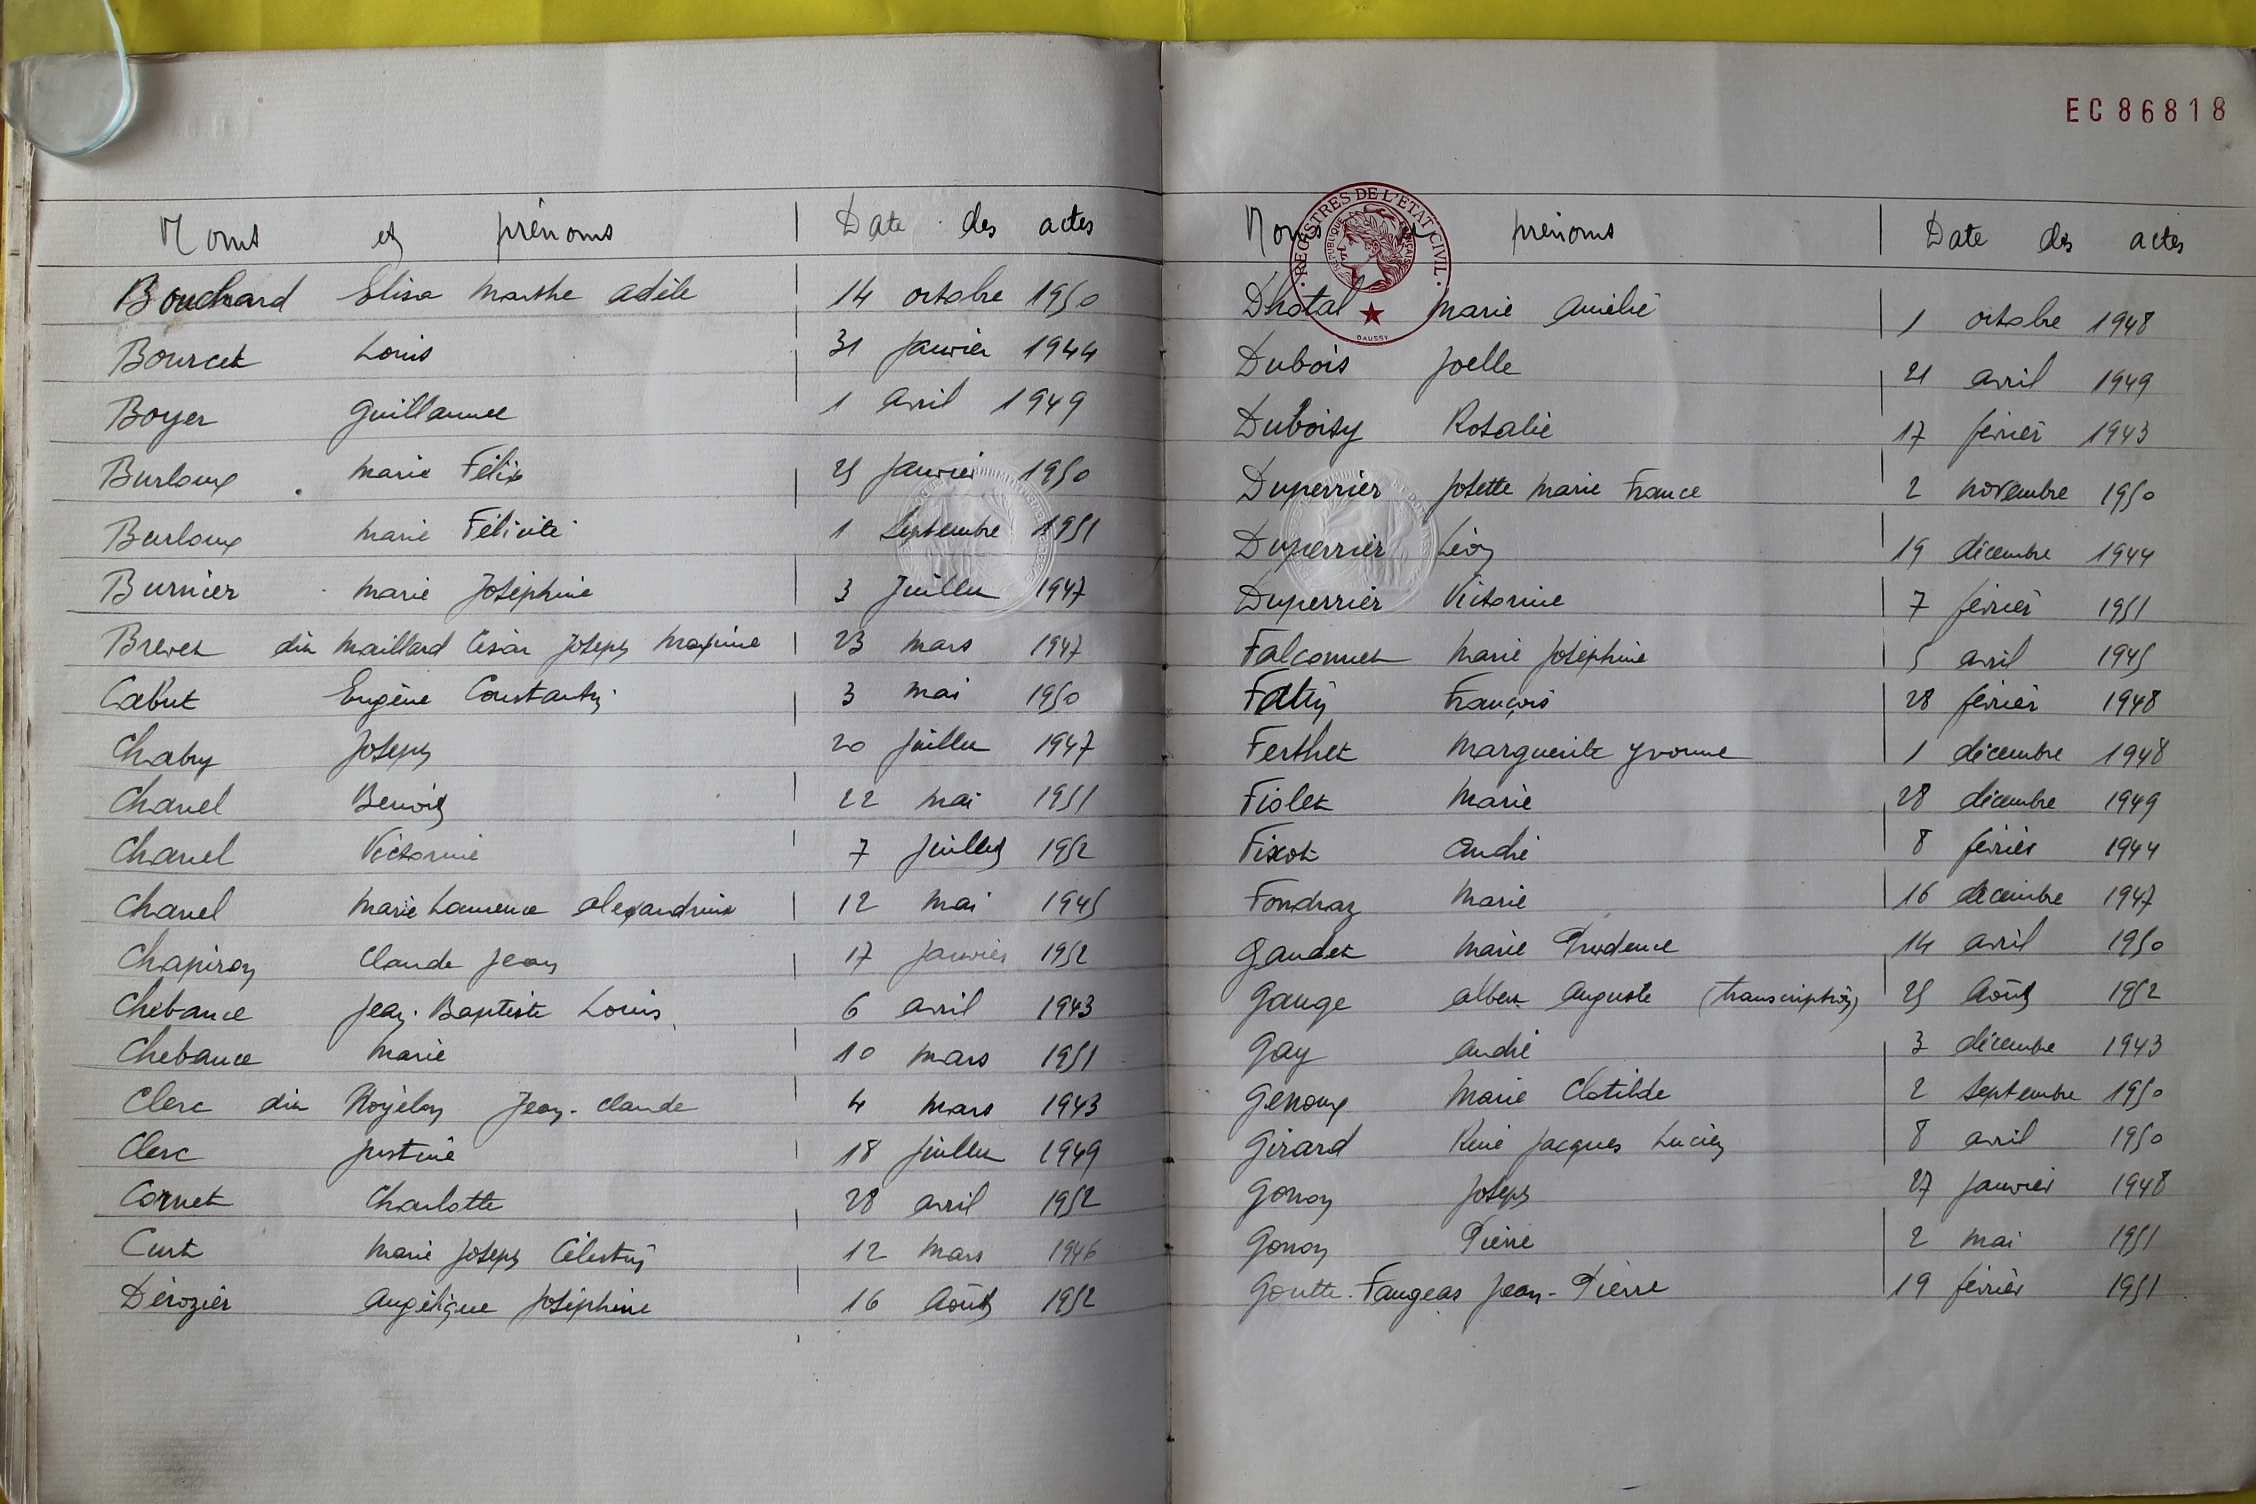 EC 86818
Noms et prénoms | Date des actes
Bouchard Elisa Marthe Adèle 14 octobre 1950
Bourcet Louis 31 Janvier 1944
Boyer Guillaume 1 Avril 1949
Burloux Marie Félix 25 Janvier 1950
Burloux Marie Félicité 1 Septembre 1951
Burnier Marie Joséphine 3 Juillet 1947
Brevet dit Maillard César Joseph Maxime 23 Mars 1947
Cabut Eugène Constantin 3 Mai 1950
Chabry Joseph 20 Juillet 1947
Chanel Benoit 22 Mai 1951
Chanel Victorine 7 Juillet 1952
Chanel Marie Laurence Alexandrine 12 Mai 1945
Chapiron Claude Jean 17 Janvier 1952
Chebance Jean-Baptiste Louis 6 avril 1943
Chebance Marie 10 Mars 1951
Clerc dit Jean-Claude 4 Mars 1943
Clerc Justine 18 Juillet 1949
Cornet Charlotte 28 avril 1952
Curt Marie Joseph Célestin 12 Mars 1946
Dérozier Angélique Joséphine 16 Août 1952
Noms et prénoms | Date des actes
REGISTRES DE L'ETAT CIVIL
REPUBLIQUE FRANÇAISE
DAUSSY
Dhotal Marie Amélie 1 octobre 1948
Dubois Joelle 21 avril 1949
Duboisy Rosalie 17 février 1943
Duperrier Josette Marie France 2 novembre 1950
Duperrier Léon 19 décembre 1944
Duperrier Victorine 7 février 1951
Falconnet Marie Joséphine 5 avril 1945
Fatin François 28 février 1948
Ferthet Marguerite Yvonne 1 décembre 1948
Fiolet Marie 28 décembre 1949
Fixot André 8 février 1944
Fondraz Marie 16 décembre 1947
Gaudet Marie Prudence 14 avril 1950
Gauge Albert Auguste (transcription) 25 Août 1952
Gay André 3 décembre 1943
Genoux Marie Clotilde 2 Septembre 1950
Girard René Jacques Lucien 8 avril 1950
Gonon Joseph 27 Janvier 1948
Gonon Pierre 2 Mai 1951
Goutte-Fangeas Jean-Pierre 19 février 1951